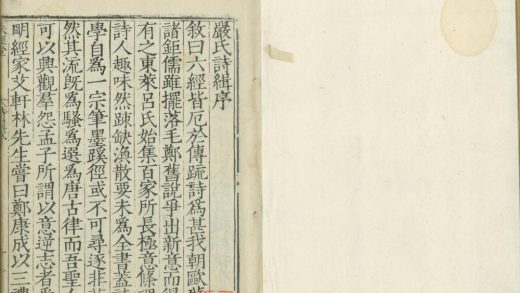 嚴氏詩緝序
敘曰六經皆厄於傳疏詩爲甚我朝歐
諸鉅儒雖擺落毛鄭舊說爭出新意而得
有之東萊呂氏始集百家所長極意條理
詩人趣味然踈缺渙散要未爲全書蓋
學自爲一宗筆墨蹊徑或不可尋逐非
然其流旣爲騷爲選爲唐古律而吾聖
可以興觀羣怨孟子所謂以意逆志者
明經家艾軒林先生嘗曰鄭康成以三禮